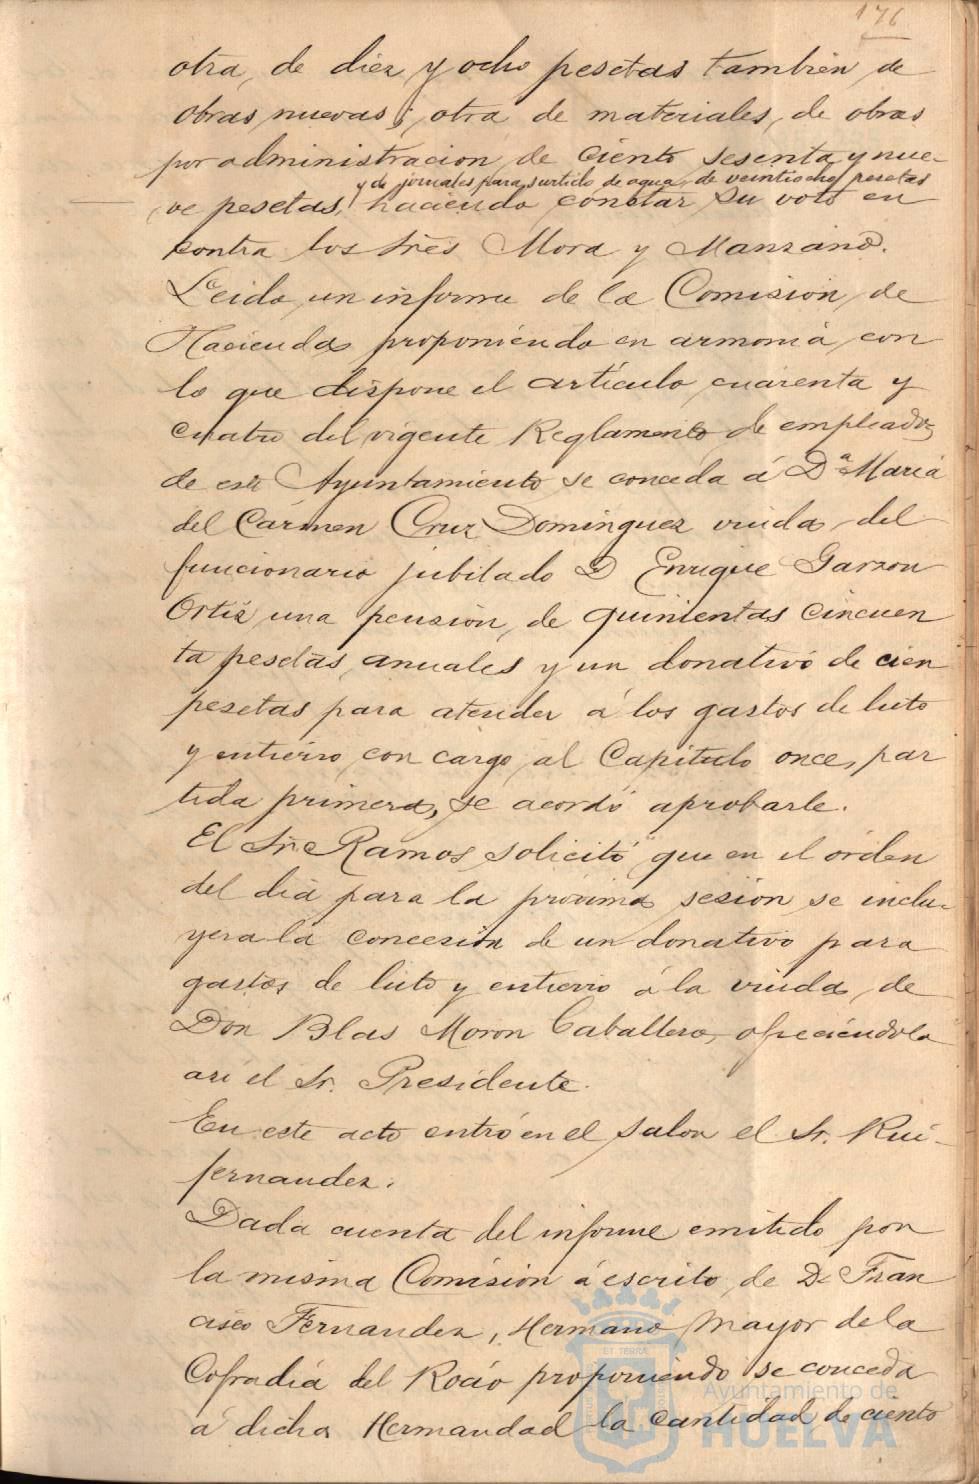 176
otra, de diez y ocho pesetas tambien, de
obras nuevas; otra de materiales, de obras
por administracion de ciento sesenta y nue-
y de jornales para surtido de agua, de veintiocho pesetas
ve pesetas, haciendo constar su voto en
contra los Srés Mora y Manzano.
Leido un informe de la Comisión, de
Hacienda proponiendo en armonia, con
lo que dispone el artículo cuarenta y
cuatro del vigente Reglamento de empleados
de este Ayuntamiento se conceda á Dª María
del Cármen Cruz Dominguez viuda del
funcionario jubilado D Enrique Garzon
Ortiz una pensión, de quinientas cincuen
ta pesetas anuales y un donativo de cien
pesetas para atender á los gastos de luto
y entierro con cargo al Capitulo once, par
tida primera, se acordó aprobarle.
El Sr. Ramos solicitó que en el órden
del dia para la próxima sesión se inclu-
yera la concesión de un donativo para
gastos de luto y entierro á la viuda, de
Don Blas Moron Caballero, ofreciéndola
asi el Sr. Presidente.
En este acto entró en el salon el Sr. Rui-
fernandez.
Dada cuenta del informe emitido por
la misma Comisión á escrito, de D. Fran
cisco Fernandez, Hermano Mayor de la
Cofradia del Rocio proponiendo se conceda
a dicha Hermandad la cantidad de ciento
ET TERRÆ
Ayuntamiento de
HUELVA